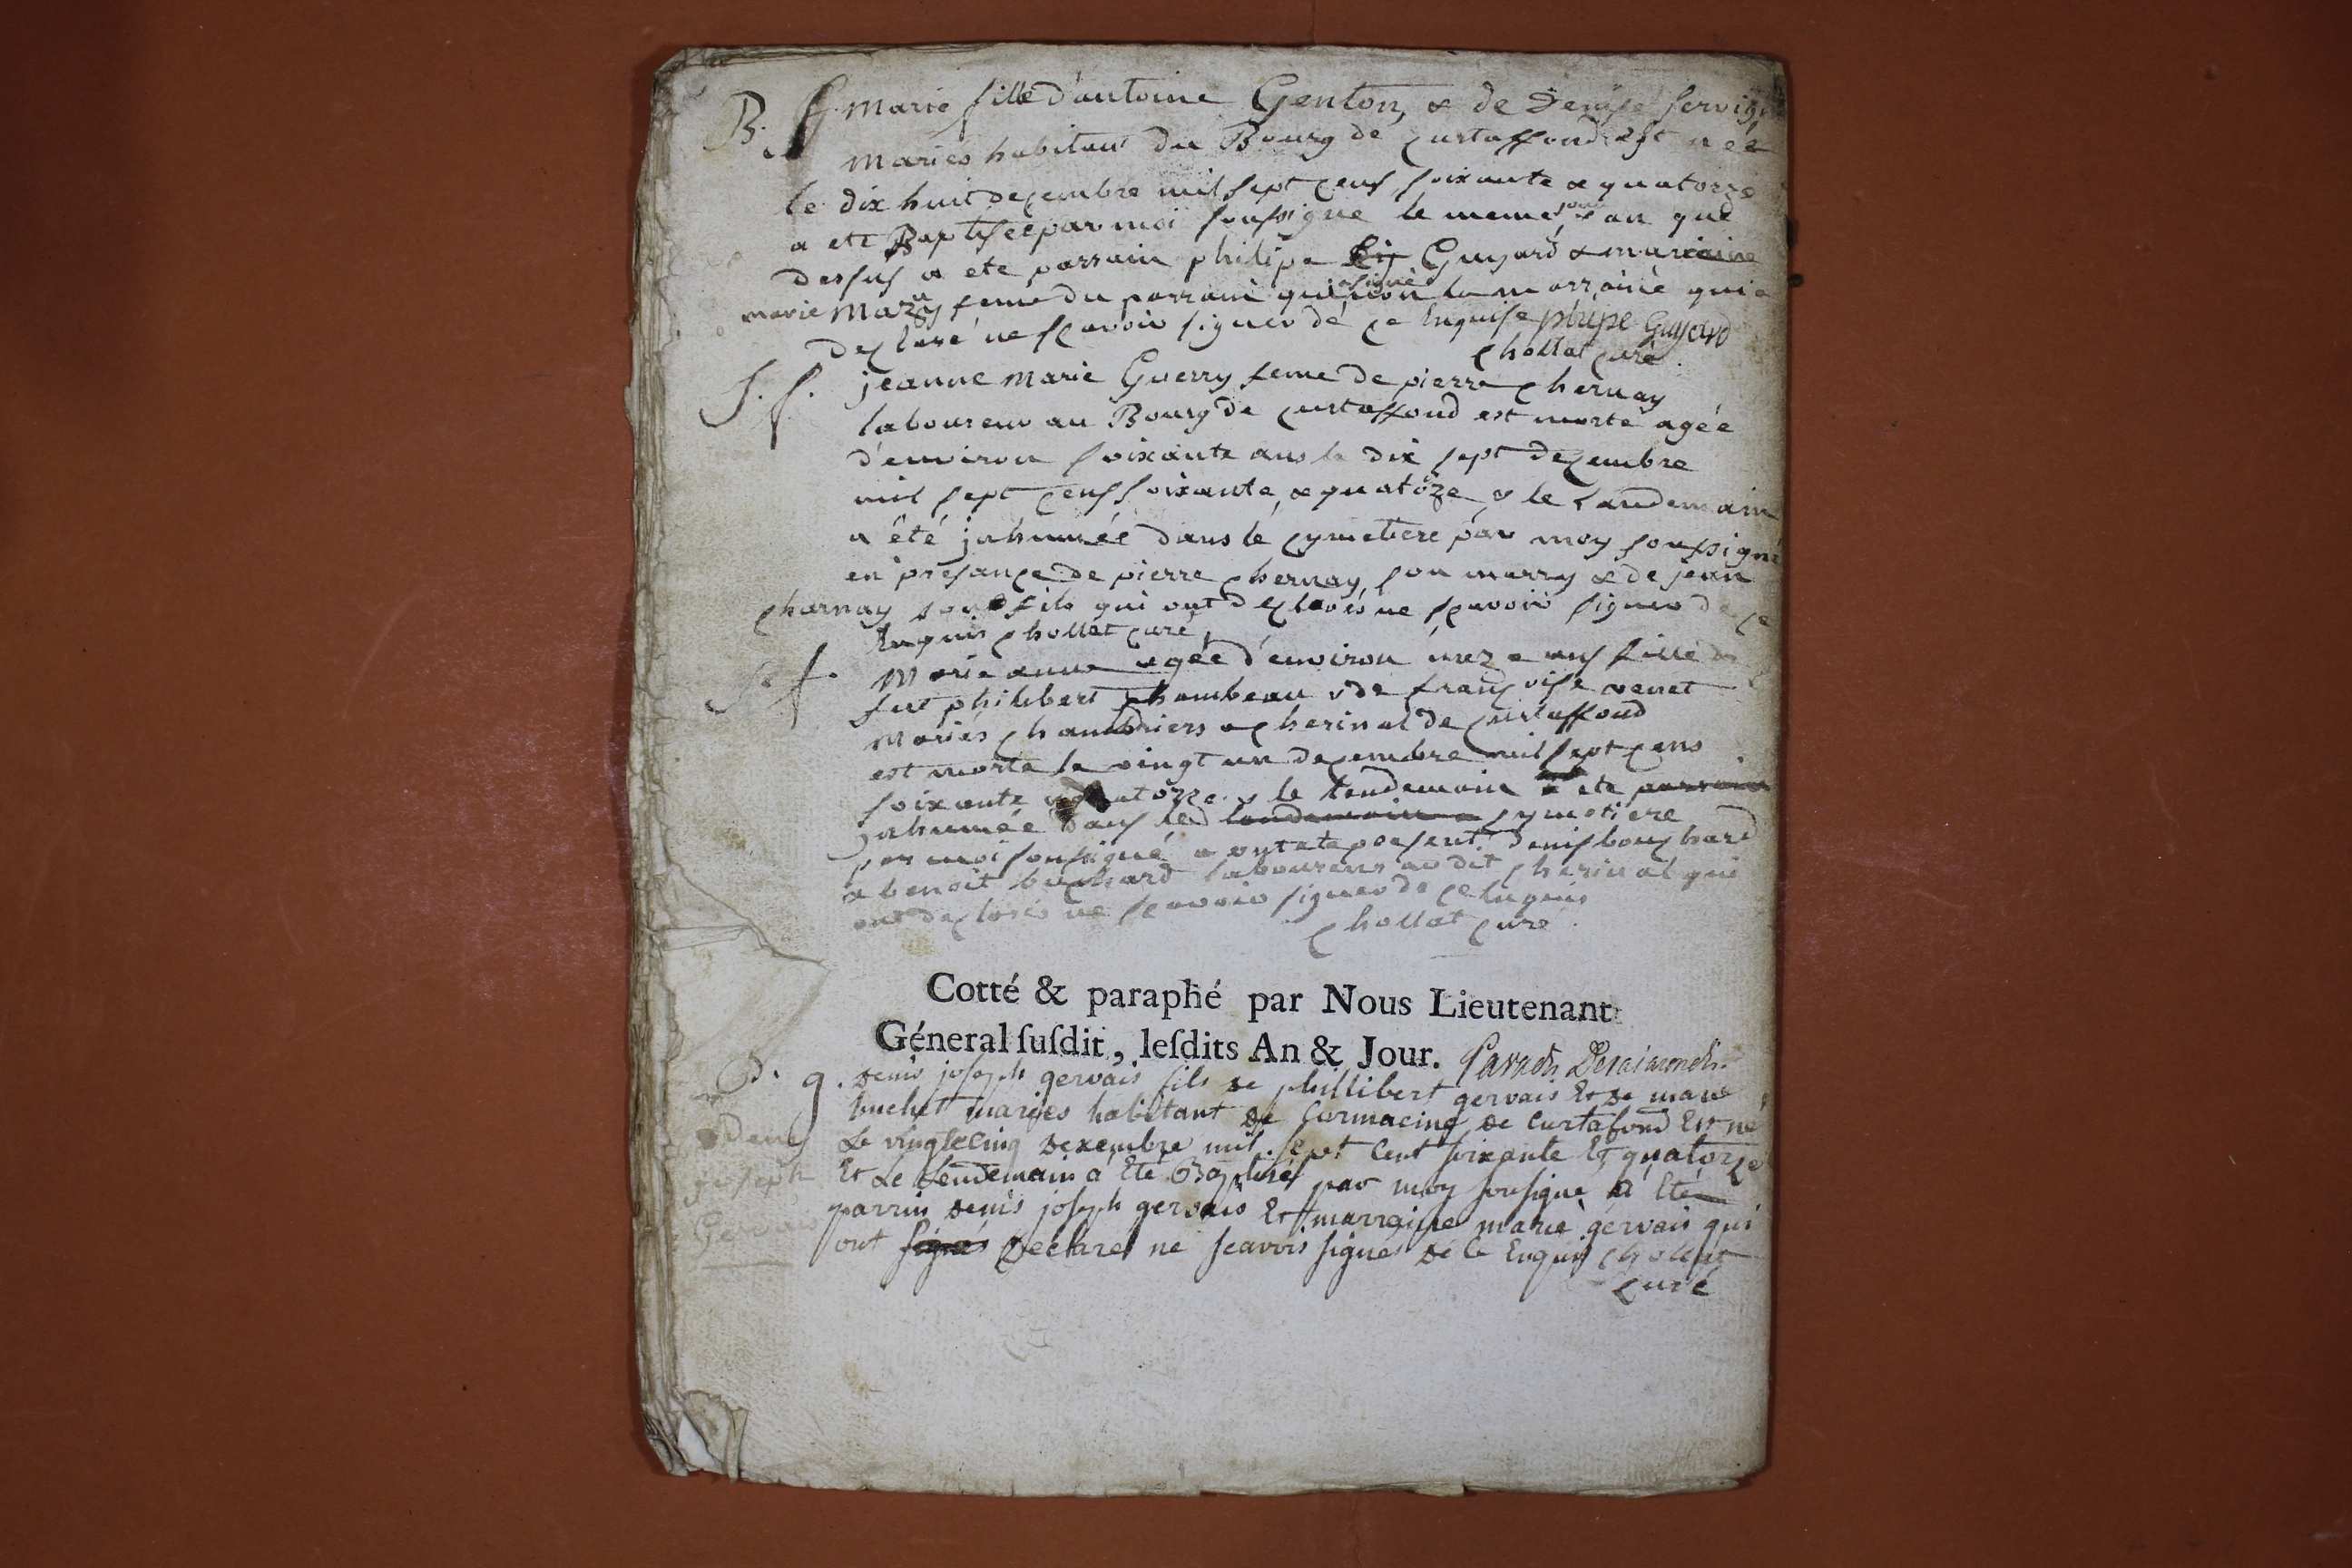 B. f. Marie fille d'antoine Genton, & de Denise
Mariés habitans du Bourg de Curtaffond est née
le dix huit decembre mil sept cens soixante & quatorze
a eté Baptisée par moi soussigné le meme jour & an que
dessus a eté parrain philipe Guyard & marraine
marie feme du parrain qui a signé non la marraine qui a
declaré ne scavoir signer dé ce Enquise phlipe Guyard
chollat curé.
S. f. jeanne Marie Guerry feme de pierre chernay
laboureur au Bourg de Curtaffond est morte agée
d'environ soixante ans le dix sept decembre
mil sept cens soixante & quatoze & le landemain
a été jnhumée dans le cymetiere par moy soussigné
en presance de pierre chernay son marry & de jean
charnay son fils qui ont declarés ne scavoir signer de ce
Enquis chollat curé
S. f. Marie anne agée d'environ ans fille de
fut philibert chambeau & de françoise venet
Mariés a cherinal de Curtaffond
est morte le vingt un decembre mil sept cens
soixante & quatorze & le lendemain a eté parrain
jnhumée dans le landemain cymetiere
par moi soussigné a ont eté present denis bouchard
& benoit bochard laboureurs au dit cherinal qui
ont declarés ne scavoir signer de ce Enquis
chollat curé.
Cotté & paraphé par Nous Lieutenant
Géneral ſuſdit, leſdits An & Jour.
D. g. denis joseph gervais fils de phillibert gervais Et de marie
buchet mariées habitant de Curmacing de Curtafond Est né
denis
Le vingtecinq dexembre mil sept Cent soixante Et quatorze
joseph
Et Le Lendemain a Eté Baptisés par moy sousigné a Eté
Gervais
parrin denis joseph gervais Et marraine marie gervais qui
ont signés Declarés ne scavoir signés dé Ce Enquis chollat
curé